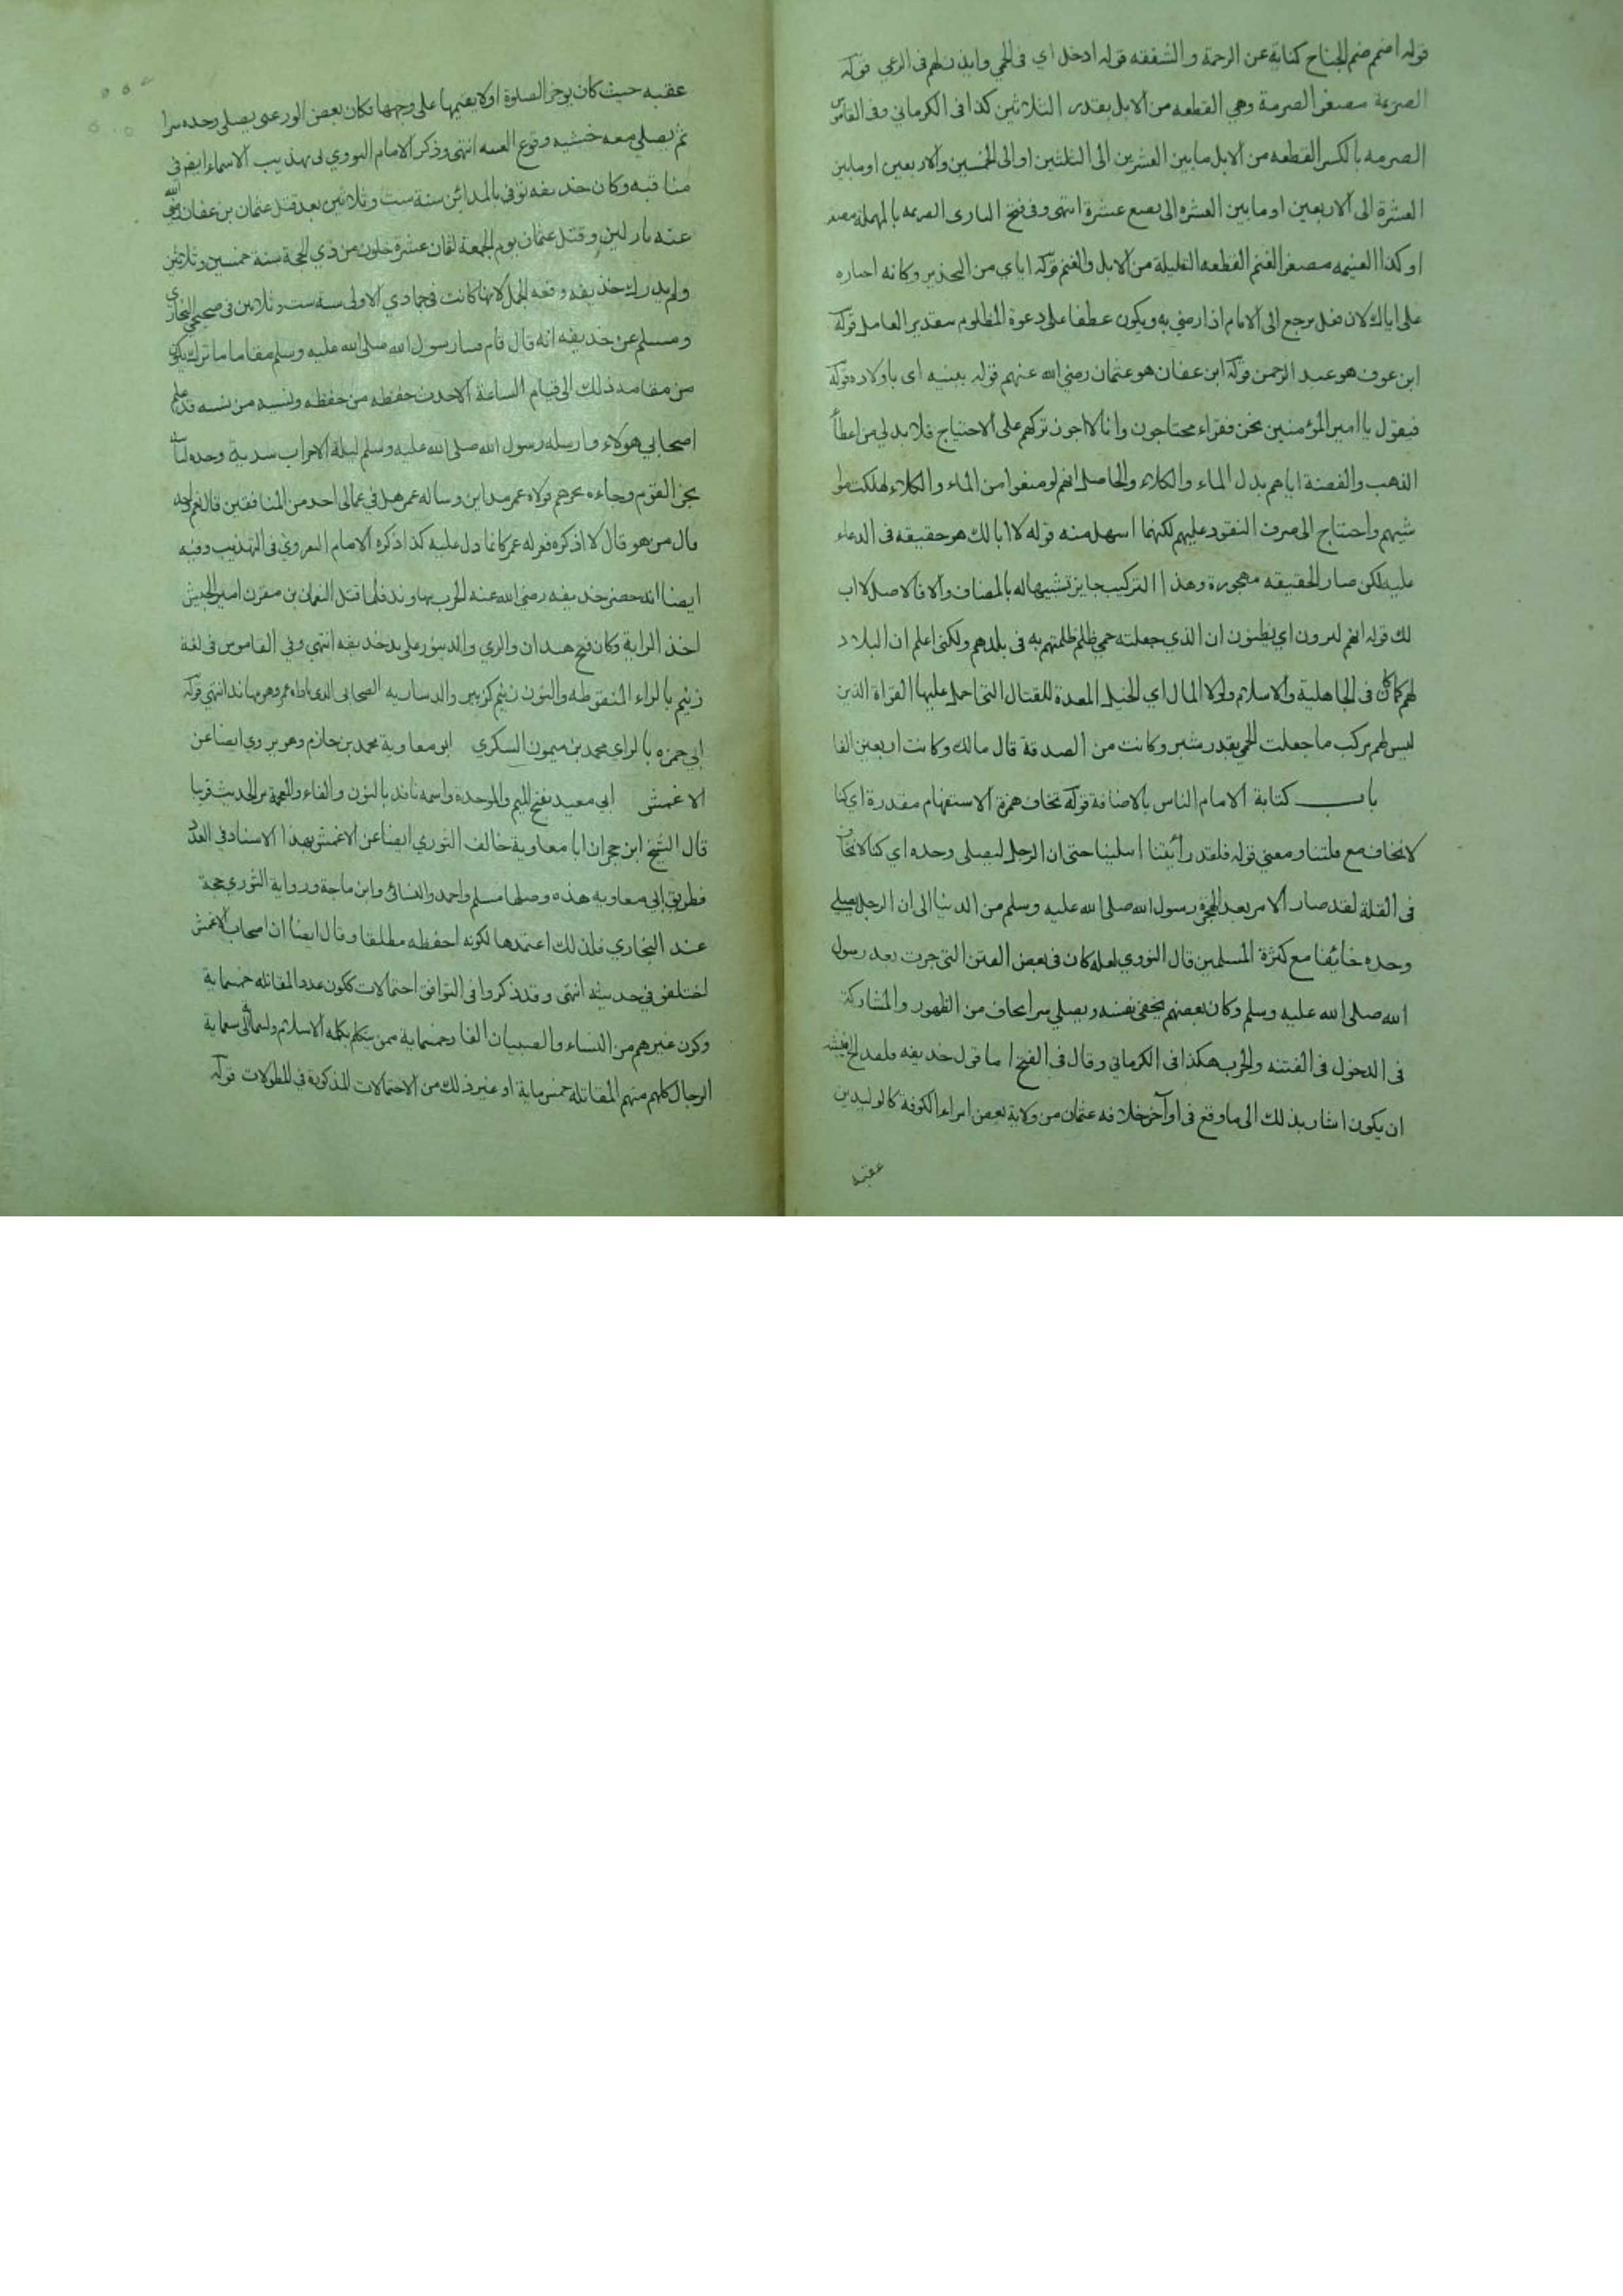 قوله اضمم ضم الجناح كناية عن الرحمة والشفقه قوله ادخل اي في الحمي وايذن لهم في الرعي قوله
الصريمة مصغر الصرمة وهي القطعه من الابل بقدر الثلاثين كذا في الكرماني وفي القاموس
الصرمه بالكسر القطعه من الابل ما بين العشرين الى الثلثين او الى الخمسين والاربعين او ما بين
العشرة الى الاربعين او ما بين العشره الى بضع عشرة انتهى وفي فتح الباري الصريمه بالمهملة مصغر
وكذا الغنيمه مصغر الغنم القطعه القليلة من الابل والغنم قوله اياي من التحذير وكانه
على اياك لان يرجع الى الامام اذا رضي به ويكون عطفا على دعوة المظلوم بتقدير العامل قوله
ابن عوف هو عبد الرحمن قوله ابن عفان هو عثمان رضي الله عنهم قوله ببنيه اى باولاده قوله
فيقول يا امير المؤمنين نحن فقراء محتاجون وانا لا اجوز تركهم على الاحتياج فلا بد لي من اعطاء
الذهب والفضة اياهم بدل الماء والكلاء والحاصل انهم لو منعوا من الماء والكلاء لهلكت مواشيهم
واحتاج الى صرف النقود عليهم لكنهما اسهل منه قوله لا ابا لك هو حقيقه في الدعاء
عليه لكن صار الحقيقه مهجورة وهذا التركيب جايز تشبيها له بالمضاف والا فالاصل لا اب
لك قوله انهم ليرون اي يظنون ان الذي جعلته حمي ظلم ظلمتهم به في بلدهم ولكني اعلم ان البلاد
لهم كما كان في الجاهلية والاسلام ولولا المال اي الخيل المعدة للقتال التي احمل عليها الغزاة الذين
ليس لهم مركب ما جعلت الحمي بقدر شبر وكانت من الصدقة قال مالك وكانت اربعين الفا
باب كتابة الامام الناس بالاضافة قوله نخاف همزة الاستفهام مقدرة اي كنا
لا نخاف مع قلتنا ومعني قوله فلقد رأيتنا ابتلينا حتى ان الرجل ليصلى وحده اي كنا لا نخاف
في القلة لقد صار الامر بعد الهجرة رسول الله صلى الله عليه وسلم من الدنيا الى ان الرجل يصلي
وحده خائفا مع كثرة المسلمين قال النووي لعله كان في بعض الفتن التي جرت بعد رسول
الله صلى الله عليه وسلم وكان بعضهم يخفي نفسه ويصلي سرا يخاف من الظهور والمشاركة
في الدخول في الفتنه والحرب هكذا في الكرماني وقال في الفتح اما قول حذيفه فلقد
ان يكون اشار بذلك الى ما وقع في اواخر خلافه عثمان من ولاية بعض امراء الكوفة كالوليد بن
عقبه
عقبه حيث كان يوخر الصلوة او لا يقيمها على وجهها فكان بعض الورعين يصلي وحده سرا
ثم يصلي معه خشيه وقوع الفتنه انتهى وذكر الامام النووي في تهذيب الاسماء ايضا في
مناقبه وكان حذيفه توفي بالمدائن سنة ست وثلاثين بعد قتل عثمان بن عفان رضي الله
عنه باربعين وقتل عثمان يوم الجمعة لثمان عشرة خلون من ذي الحجة سنة خمس وثلاثين
ولم يدرك حذيفه وقعه الجمل لانها كانت في جمادي الاولى سنه ست وثلاثين في صحيحي البخاري
ومسلم عن حذيفه انه قال قام فينا رسول الله صلى الله عليه وسلم مقاما ما ترك يكون
من مقامه ذلك الى قيام الساعة الا حدث حفظه من حفظه ونسيه من نسيه قد علم
اصحابي هولاء وارسله رسول الله صلى الله عليه وسلم ليلة الاحزاب سرية وحده
القوم وجاءه بخبرهم وولاه عمر مداين وساله عمر هل في عمالى احد من المنافقين قال نعم واحد
قال من هو قال لا اذكره فعزله عمر كانما دل عليه كذا ذكره الامام النووي في التهذيب وفيه
ايضا انه حضر حذيفه رضي الله عنه الحرب بنهاوند فلما قتل النعمان بن مقرن امير الجيش
اخذ الراية وكان فتح همدان والري والدينور على يد حذيفه انتهى وفي القاموس في لغة
زنيم بالزاء المنقوطه والنون زنيم كزبير والد ساريه الصحابى الذي ناداه عمر وهو بنهاوند انتهى قوله
ابي حمزه بالزاي محمد بن ميمون السكري ابو معاوية محمد بن حازم وهو يروي ايضا عن
الاعمش ابي معبد بفتح الميم والموحدة واسمه نافذ بالنون والفاء والمعجمة مر الحديث قريبا
قال الشيخ ابن حجر ان ابا معاوية خالف الثوري ايضا عن الاعمش بهذا الاسناد في العدد
فطريق ابي معاويه هذه وصلها مسلم واحمد والنسائي وابن ماجة ورواية الثوري حجة
عند البخاري فلذلك اعتمدها لكونه احفظه مطلقا وقال ايضا ان اصحاب الاعمش
اختلفو في حديثه انتهى وقد ذكروا في التوافق احتمالات ككون عدد المقاتله خمسماية
وكون غيرهم من النساء والصبيان الفا وخمسماية ممن يتكلم بكلمه الاسلام
الرجال كلهم منهم المقاتله خمسماية او غير ذلك من الاحتمالات المذكورة في المطولات قوله